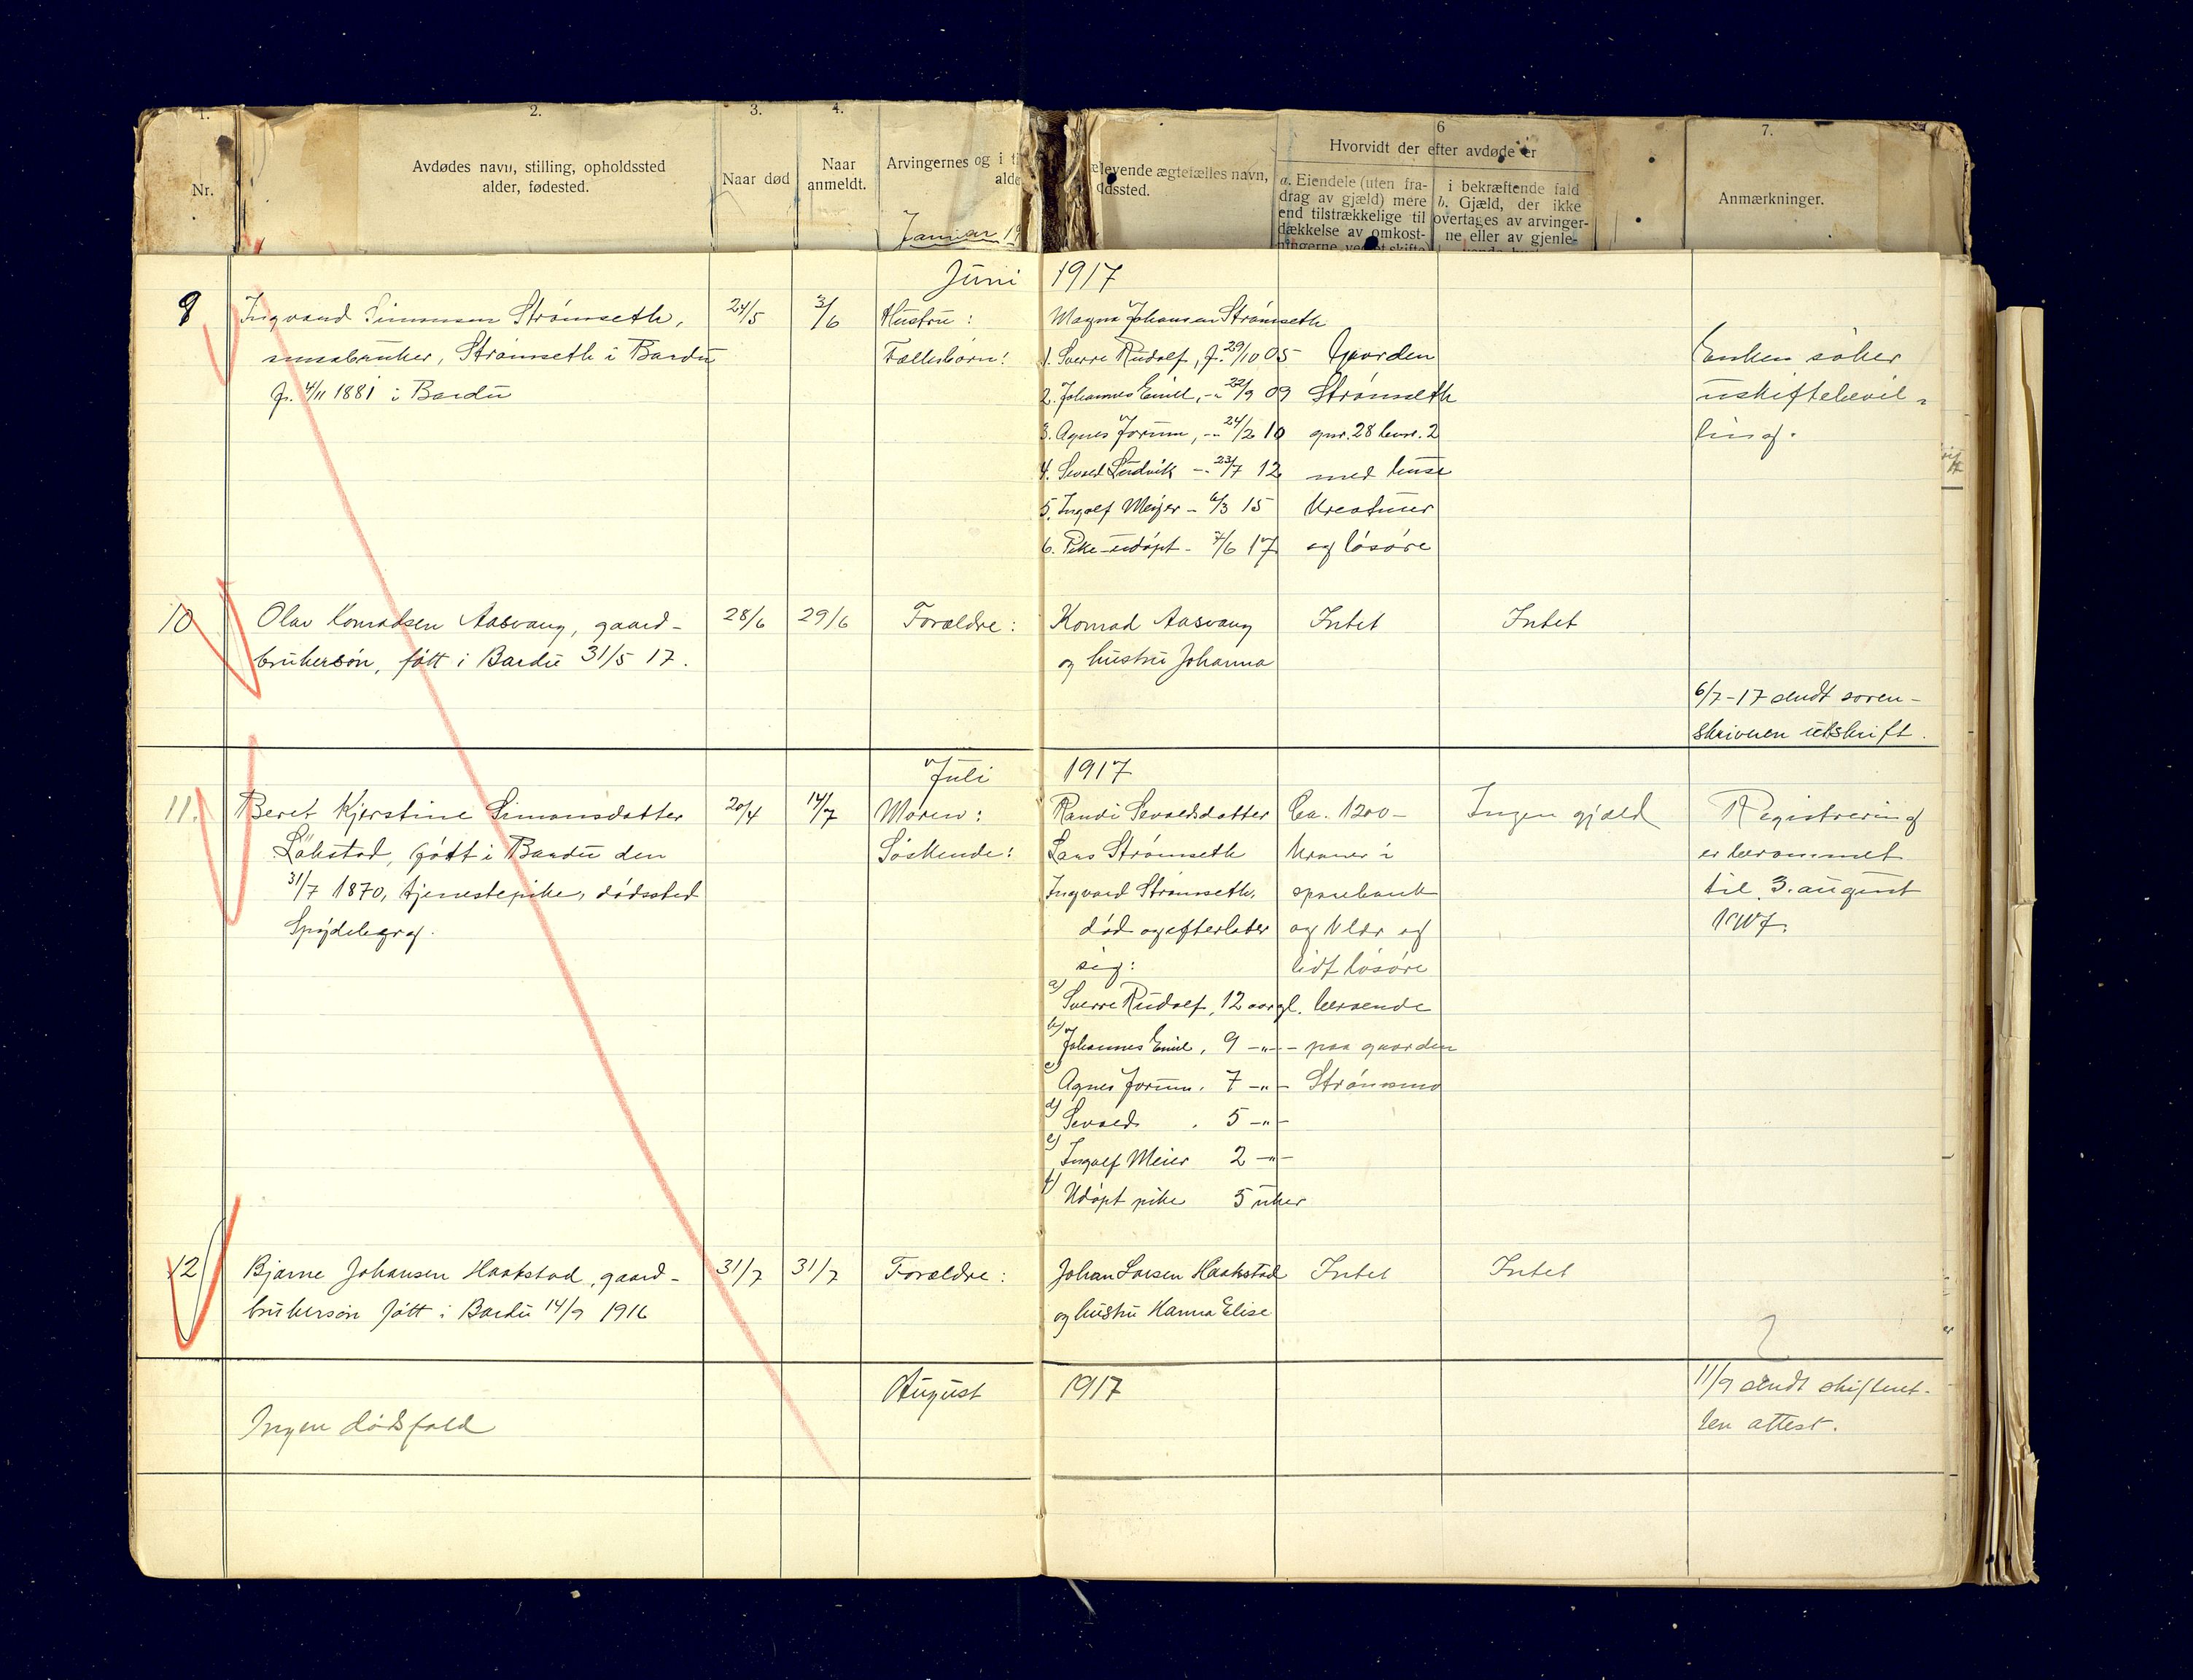 1.
2.
3.
4.
6
7.
Nr.
Avdødes navn, stilling, opholdssted
alder, fødested.
Naar død
Naar
anmeldt.
Arvingernes og i
alde
levende ægtefælles navn,
Hvorvidt der efter avdøde er
a. Eiendele (uten fra-
drag av gjæld) mere
end tilstrækkelige til
dækkelse av omkost-
ningerne ved et skifte
i bekræftende fald
b. Gjæld, der ikke
overtages av arvinger-
ne eller av gjenle-
Anmærkninger.
Januar 19
Juni 1917
9
Ingvard Simonsen Strømseth,
smaabruker, Strømseth i Bardu
f. 4/11 1881 i Bardu
24/5
3/6
Hustru:
Fællesbørn:
Magna Johansen Strømseth
1. Sverre Rudolf, f. 29/10 05
2. Johannes Emil, -"- 22/9 09
3. Agnes Jorun, -"- 24/2 10
4. Sevald Ludvik -"- 23/7 12
5. Ingolf Meijer - 6/3 15
6. Pike udøpt - 7/6 17
Gaarden
Strømseth
gnr. 28 bnr. 2
med huse
kreaturer
og løsøre
Enken søker
uskiftebevil-
ling.
10
Olav Konradsen Aasvang, gaard-
brukersøn, født i Bardu 31/5 17.
28/6
29/6
Forældre:
Konrad Aasvang
og hustru Johanna
Intet
Intet
6/7-17 sendt soren-
skriveren utskrift.
Juli 1917
11.
Beret Kjerstine Simonsdatter
Løkstad, født i Bardu den
31/7 1870, tjenestepike, dødssted
20/4
14/7
Moren:
Søskende:
Randi Sevaldsdatter
Lars Strømseth
Ingvard Strømseth,
død og efterlater
sig:
a) Sverre Rudolf, 12 aar gl.
b) Johannes Emil, 9 -"-
c) Agnes Jorun, 7 -"-
d) Sevald, 5 -"-
e) Ingolf Meier 2 -"-
f) Udøpt pike 5 uker
Ca. 1200-
kroner i
sparebank
og klær og
lidt løsøre
beroende
paa gaarden
Strømsmo
Ingen gjæld
Registrering
er berammet
til 3. august
1917.
12
Bjarne Johansen Haakstad, gaard-
brukersøn født i Bardu 14/9 1916
31/7
31/7
Forældre:
Johan Larsen Haakstad
og hustru Hanna Elise
Intet
Intet
August 1917
Ingen dødsfald
11/9 sendt skifteret-
ten attest.